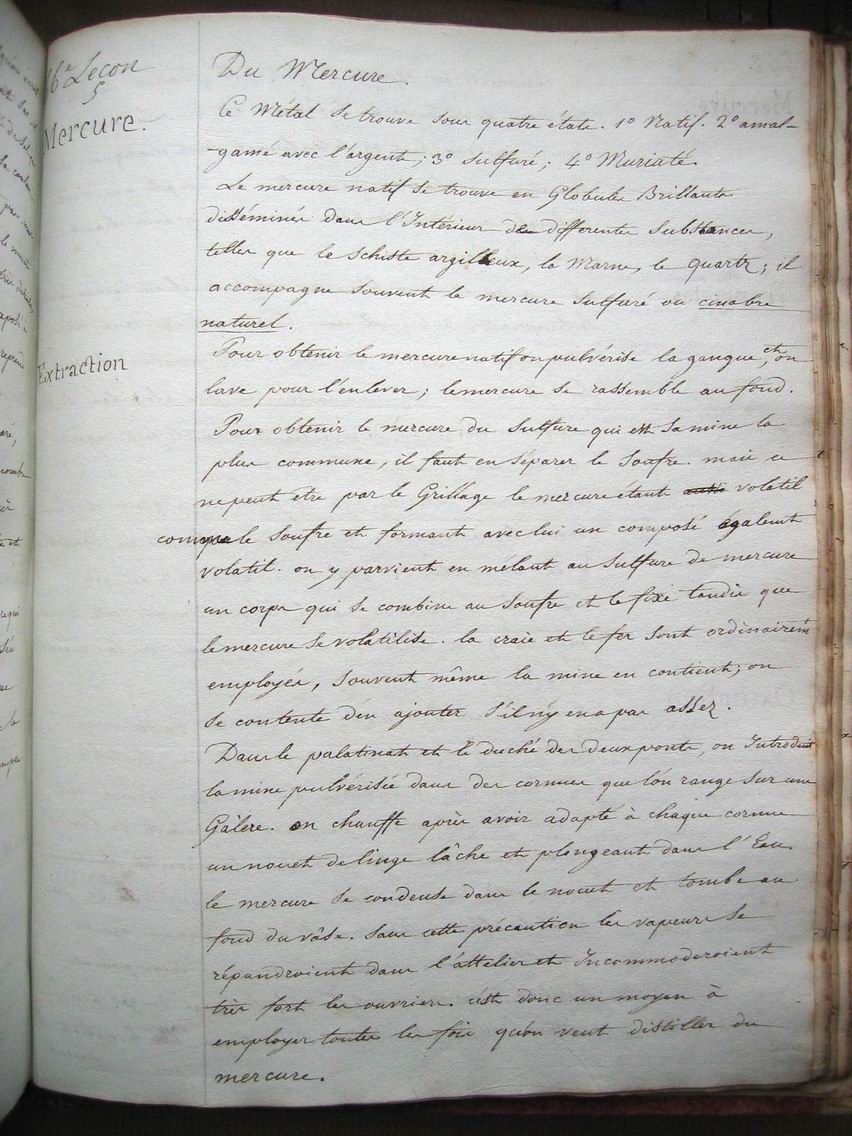 16e Lecon
5
Mercure.
Du Mercure.
Ce Métal se trouve sous quatre états. 1o Natif. 2o amal-
-gamé avec l'argent; 3o sulfuré; 4o Muriaté.
Le mercure natif se trouve en Globules Brillants
disséminés dans l'Intérieur de differentes substances,
telles que le schiste argilleux, la Marne, le quartz; il
accompagne souvent le mercure sulfuré ou cinabre
naturel.
Extraction
Pour obtenir le mercure natif on pulvérise la gangue, et on
lave pour l'enlever; le mercure se rassemble au fond.
Pour obtenir le mercure du sulfure qui est sa mine la
plus commune, il faut en séparer le soufre. mais ce
ne peut etre par le Grillage le mercure étant aussi volatil
comme le soufre et formant avec lui un composé égalemt
volatil. on y parvient en mélant au sulfure de mercure
un corps qui se combine au soufre et le fixe tandis que
le mercure se volatilise. la craie et le fer sont ordinairemt
employés, souvent même la mine en contient; on
se contente d'en ajouter s'il n'y en a pas assez.
Dans le palatinat et le duché des deux ponts, on Introduit
la mine pulvérisée dans des cornues que l'on range sur une
Galere. on chauffe après avoir adapté à chaque cornue
un nouet de linge lâche et plongeant dans l'Eau.
le mercure se condense dans le nouet et tombe au
fond du vâse. sans cette précaution les vapeurs se
répandroient dans l'attelier et Incommoderoient
très fort les ouvriers. c'est donc un moyen à
employer toutes les fois qu'on veut distiller du
mercure.